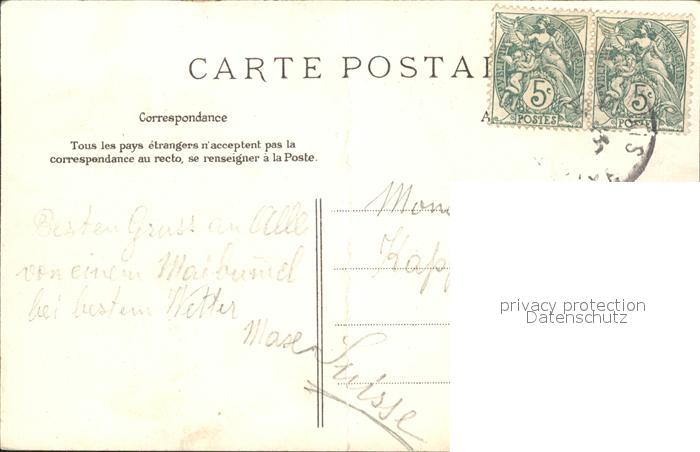 CARTE POSTA
Correspondance
A
Tous les pays étrangers n'acceptent pas la
correspondance au recto, se renseigner à la Poste.
5c
POSTES
5c
POSTES
Besten Gruss an Alle
von einem Maibummel
bei bestem Wetter
Mon
Kapp
Suisse
privacy protection
Datenschutz